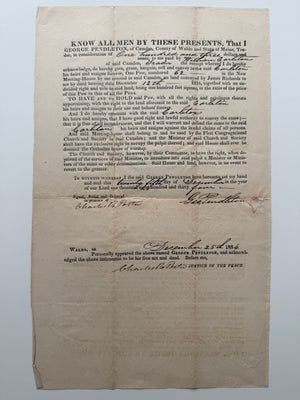 KNOW ALL MEN BY THESE PRESENTS, That I
GEORGE PENDLETON, of Camden, County of Waldo and State of Maine, Tra-
der, in consideration of One hundred and thirty
paid by William Carleton
of said Camden, Trader the receipt whereof I do hereby
acknowledge, do hereby give, grant, bargain, sell and convey to the said Carleton
his heirs and assigns forever, One Pew, numbered 62 in the New
Meeting-House by me erected in said Camden, on land conveyed by James Richards as
by deed dated November 12th 1834, together with an un-
divided right and title to said land, being one hundred feet square, in the ratio of the price
of this Pew to that of all the Pews.
TO HAVE and TO HOLD said Pew, with all the rights and privileges thereto
appertaining, with the right to the land aforesaid to the said Carleton
his heirs and assigns to their use and behoof forever.
And I do covenant with the said Carleton
his heirs and assigns, that I have good right and lawful authority to convey the same;
that it is free of incumbrances, and that I will warrant and defend the same to the said
Carleton his heirs and assigns against the lawful claims of all persons.
Said Meeting-house shall belong to and be used by the First Congregational
Church and Society in said Camden; and the Minister of said Church and Society
shall have the exclusive right to occupy the pulpit thereof; and said House shall ever be
devoted to the Orthodox house of worship.
The Church and Society, however, by their Committee, to have the right, when de-
prived of the services of their Minister, to introduce into said pulpit a Minister or Minis-
ters of the same or other communions. Said House and land, however, in no event to
revert to the grantor.
IN WITNESS WHEREOF I the said GEORGE PENDLETON have hereunto set my hand
and seal this twenty fifth of December in the year
of our Lord one thousand eight hundred and thirty four
Signed, Sealed and
in presence of
Geo Pendleton
Charles R Porter
WALDO, ss. December 25th 1834
Personally appeared the above named GEORGE PENDLETON, and acknowl-
edged the above instrument to be his free act and deed. Before me,
Charles R Porter JUSTICE OF THE PEACE.